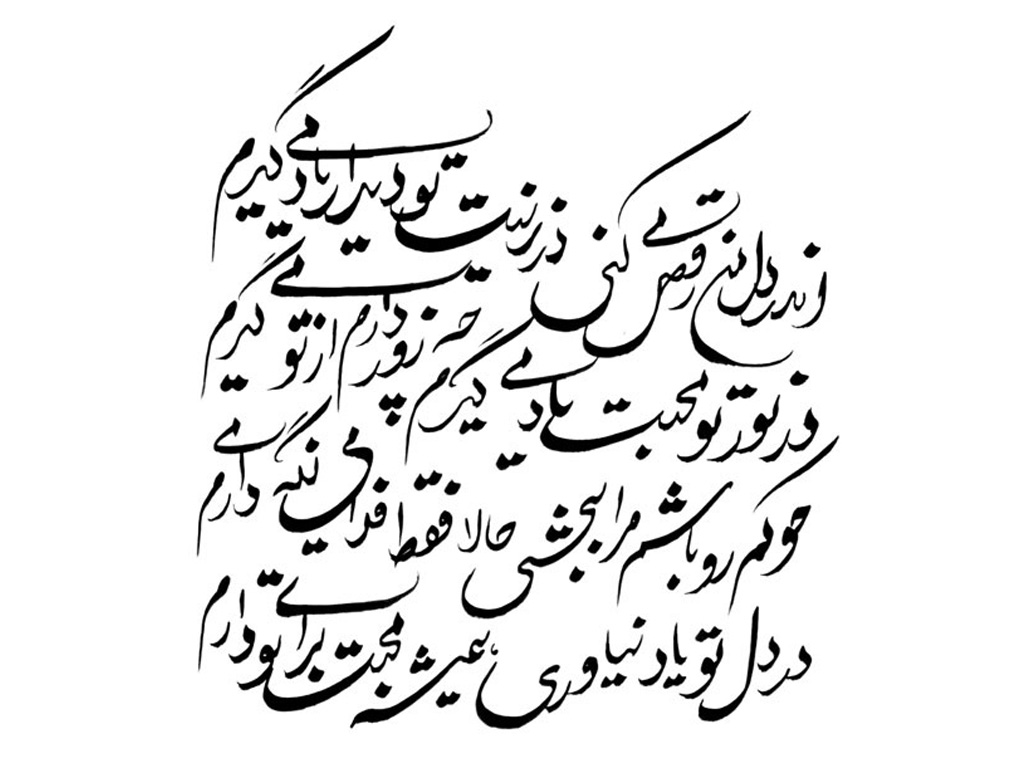 اندر دل من رقص می کنی در زینت تو دیدار یاد می گیرم
در نور تو محبت یاد می گیرم چه زور دارم از تو می گیرم
رو باشم مرا ببخشی حالا فقط می نگه دارم
در دل تو یاد نیاوری محبت برای تو دارم